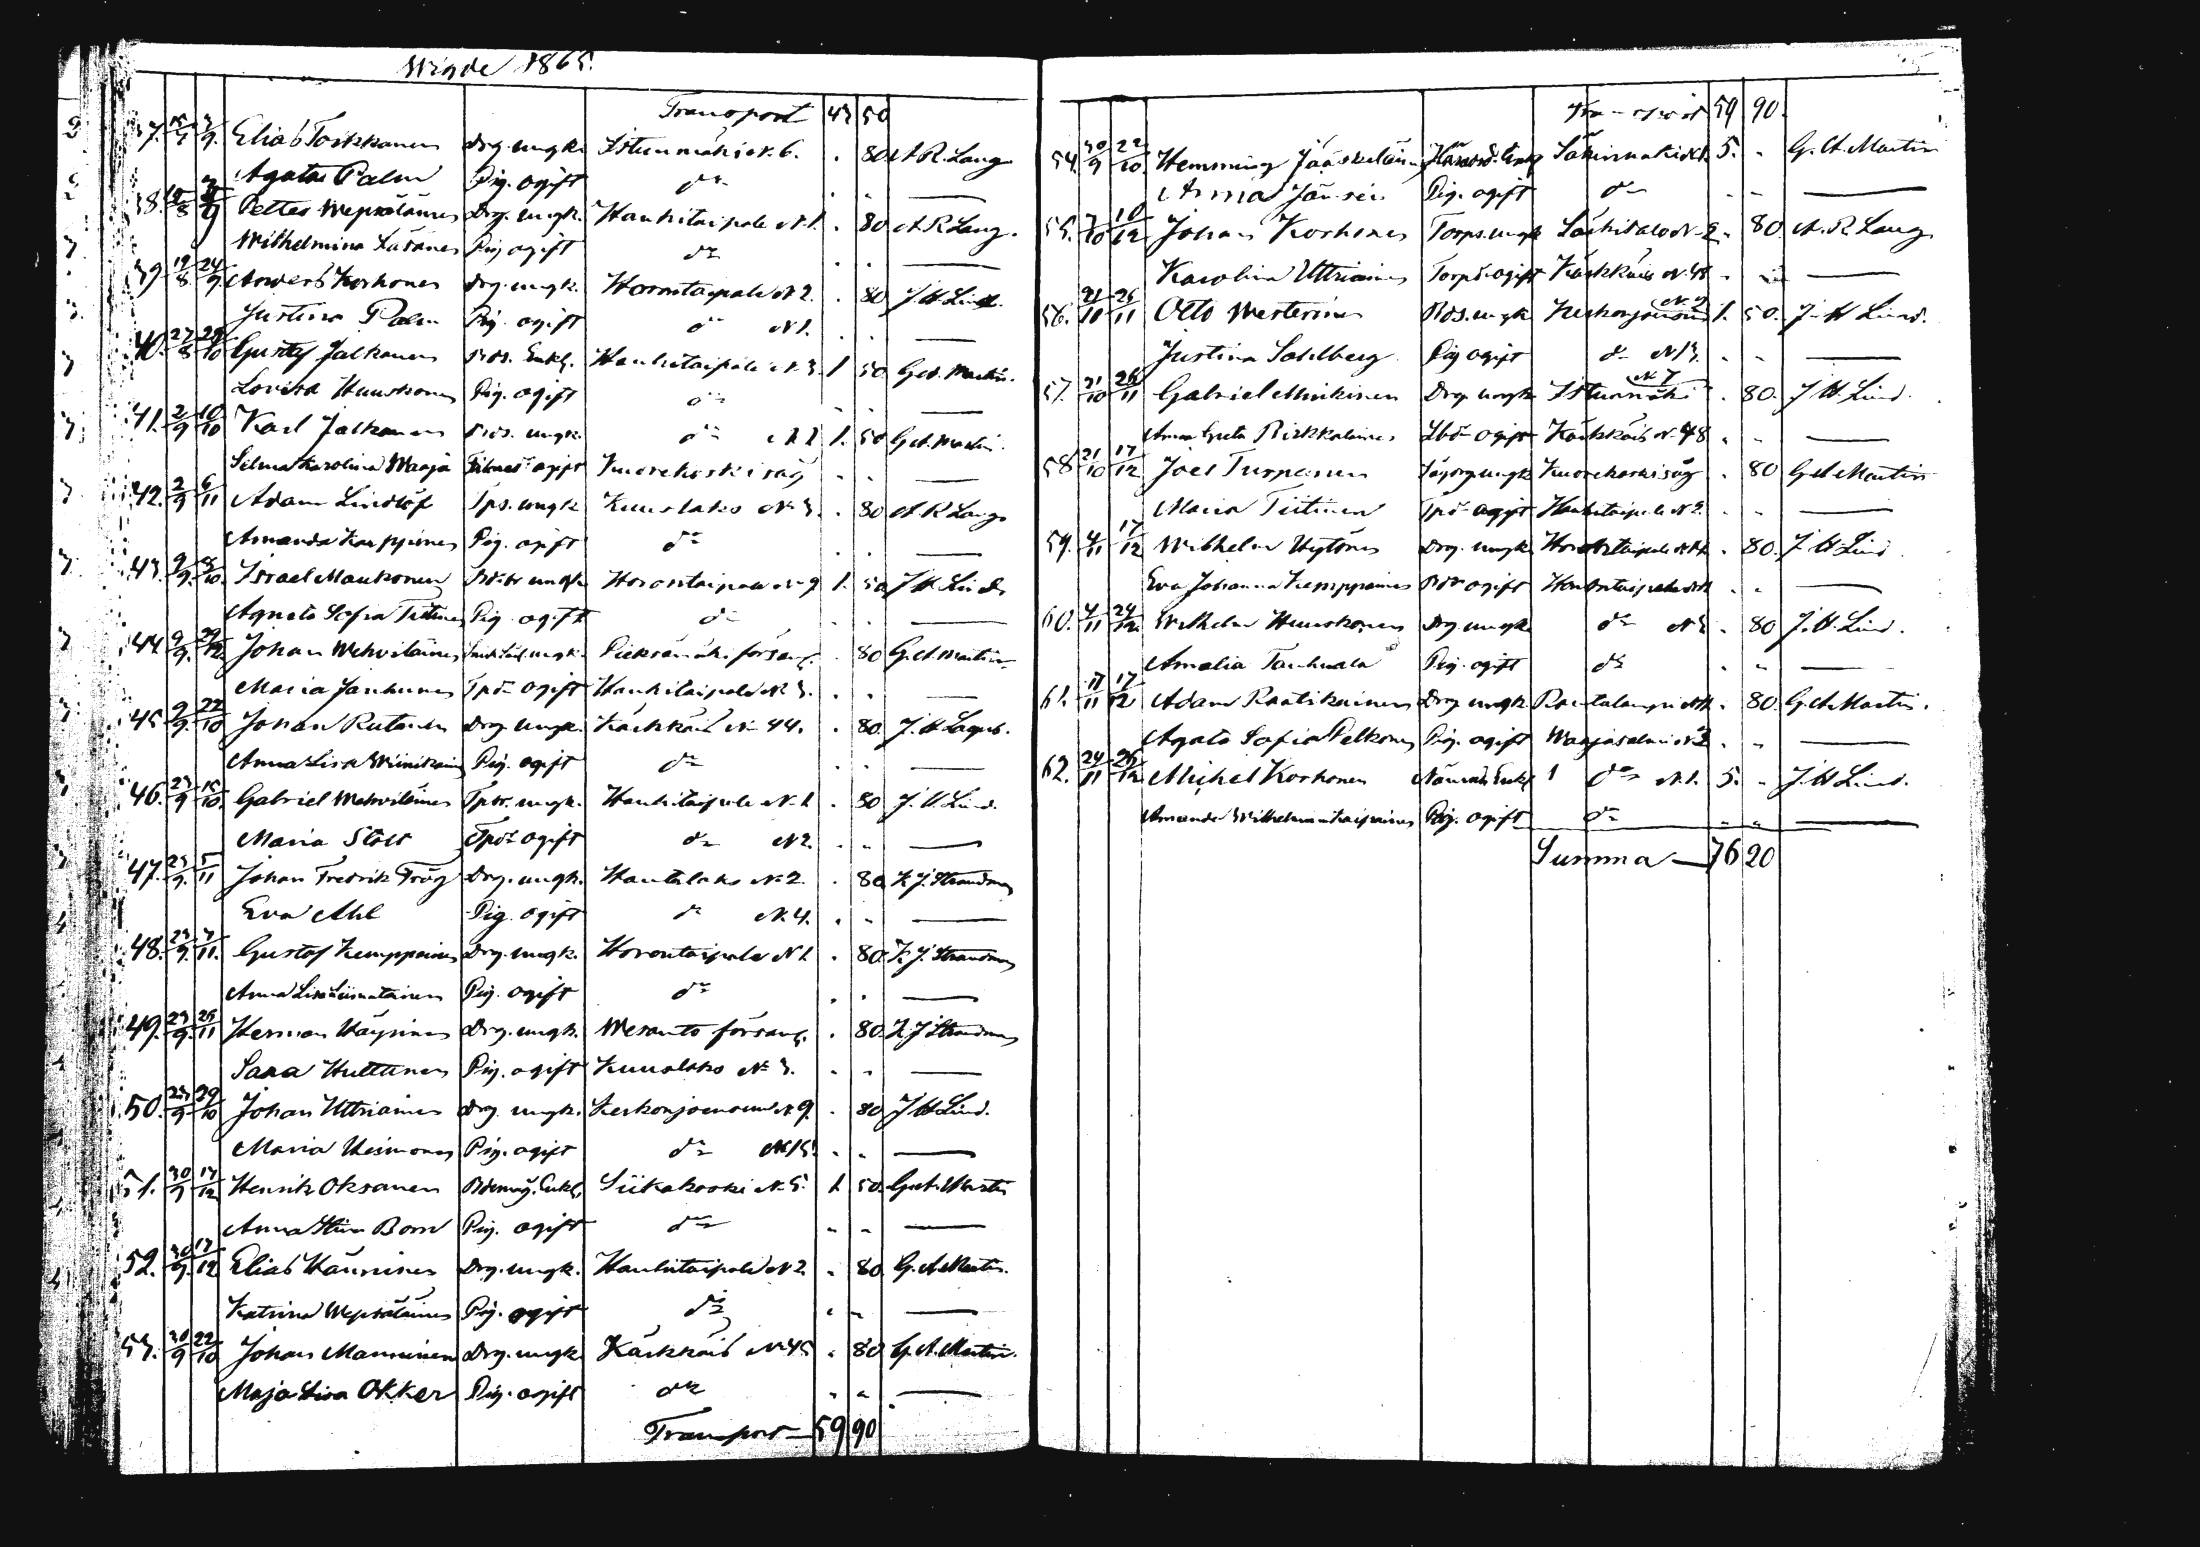 Wigde 1865.
Transport 43 50
37. 9. Elias Toskkanen Drg. ungk. Istunmäki N. 6. . 80 A R Lang
Agata Palm Pig. ogift do . . —
38. Petter Wepsäläinen Drg. ungk. Hankitaipale N. 1. . 80 A R Lang.
Wilhelmina Pig ogift do . . —
39 19/8 24/9 Anders Korhonen Drg. ungk. Horontaipale N 2. . 80 J H Lind.
Justina Palm Pig. ogift do N 1. . . —
40. 27/8 29/10 Gustaf Jalkanen Bds. Enkl. Hankitaipale N. 3. 1 50 G A Martin.
Lovisa Huuskonen Pig. ogift do . . —
41. 2/9 10/10 Karl Jalkanen Bds. ungk. do 1. 50 G A Martin.
Selma Karolina Maaja ogift Kuorekoski såg . . —
42. 2/9 6/11 Adam Lindlöf Tps. ungk Kuuslaks N. 3. . 80 A R Lang
Amanda Karppinen Pig. ogift do . . —
43. 9/9. 8/10 Israel Maukonen ungk. Horontaipale N 9 1. 50 J H Lind
Agneta Sofia Tittinen Pig. ogift do . . —
44. 9/9. 29/12 Johan Wehviläinen ungk. Pieksämäki församl. . 80 G A Martin
Maria Janhunen Tpdr ogift Hankitaipale N. 3. . . —
45 9/9. 22/10 Johan Rutanen Drg. ungk. Kärkkäis N 44. . 80. J. H Lagus.
Anna Lisa Wiinikain Pig. ogift do . . —
46. 23/9 15/10 Gabriel Wehviläinen Tpsr. ungk. Hankitaipale N. 1. . 80 J. H Lind.
Maria Stolt Tpdr ogift do N 2. . . —
47. 23/9. 5/11 Johan Fredrik Trög Drg. ungk. Hantalaks N. 2. . 80 K J. Strandman
Eva Ahl Pig. ogift do N. 4. . . —
48. 23/9. 7/11. Gustaf Kemppainen Drg. ungk. Horontaipale N 1. . 80 K J. Strandman
Anna Lisa Liimatainen Pig. ogift do . . —
49. 23/9. 25/11 Herman Käyrinen Drg. ungk. Wesanto församl. . 80. K J Strandman
Sara Hulttinen Pig. ogift Kuuslaks N. 3. . . —
50. 23/9 29/10 Johan Uttriainen Drg. ungk. Keskonjoensuu N 9. . 80 J H Lind.
Maria Heimonen Pig. ogift do N 15. . . —
51. 30/9 17/12 Henrik Oksanen Enkl. Siikakoski N. 5. 1. 50. G A Martin
Anna Stina Born Pig. ogift do . . —
52. 30/9. 17/12 Elias Känninen Drg. ungk. Hankitaipale N 2. . 80. G. A Martin.
Katrina Wepsäläinen Pig. ogift do . . —
53. 30/9 22/10 Johan Manninen Drg. ungk. Kärkkäis N 45 . 80 G A. Martin.
Maja Lisa Okker Pig. ogift do . . —
Transport 59 90
Transport 59 90.
54. 30/9 22/10. Hemming Jääskeläinen Enkl Säkinmäki N 1. 5. . G. A Martin
Anna Jänsen Pig. ogift do . . —
55. 7/10 10/12 Johan Korhonen Torps. ungk Lachisalo N 2. . 80. A. R Lang
Karolina Uttriainen Torpdr ogift Kärkkäis N. 48 . . —
56. 21/10 26/11 Otto Westerinen Bds. ungk Keskonjoensuu N. 9 1. 50. J H Lind.
Justina Sahlberg Pig ogift do N 13. . . —
57. 21/10 26/11 Gabriel Minkinen Drg. ungk Istunmäki N 7 . 80. J H. Lind.
Anna Greta Riekkalainen ogift Kärkkäis N. 48 . . —
58 21/10 17/12 Joel Turpeinen ungk Kuorekoski såg . 80 G A Martin
Maria Tiitinen Tpdr ogift Hankitaipale N 2. . . —
59. 4/11 17/12 Wilhelm Hytönen Drg. ungk Horontaipale N 1. . 80. J. H Lind
Eva Johanna Kemppainen ogift Horontaipale N 1 . . —
60. 4/11 24/12 Wilhelm Huuskonen Drg. ungk do N 3 . 80 J. H. Lind.
Amalia Tanhuala Pig. ogift do . . —
61. 11/11 17/12 Adam Raatikainen Drg. ungk Rautalampi N 11 . 80. G A Martin.
Agata Sofia Pelkonen Pig. ogift Waajasalmi N 2 . . —
62. 24/11 26/12 Mikel Korhonen Enkl do N. 1. 5. . J. H Lind.
Amanda Wilhelmina Pig. ogift do . . —
Summa — 76 20